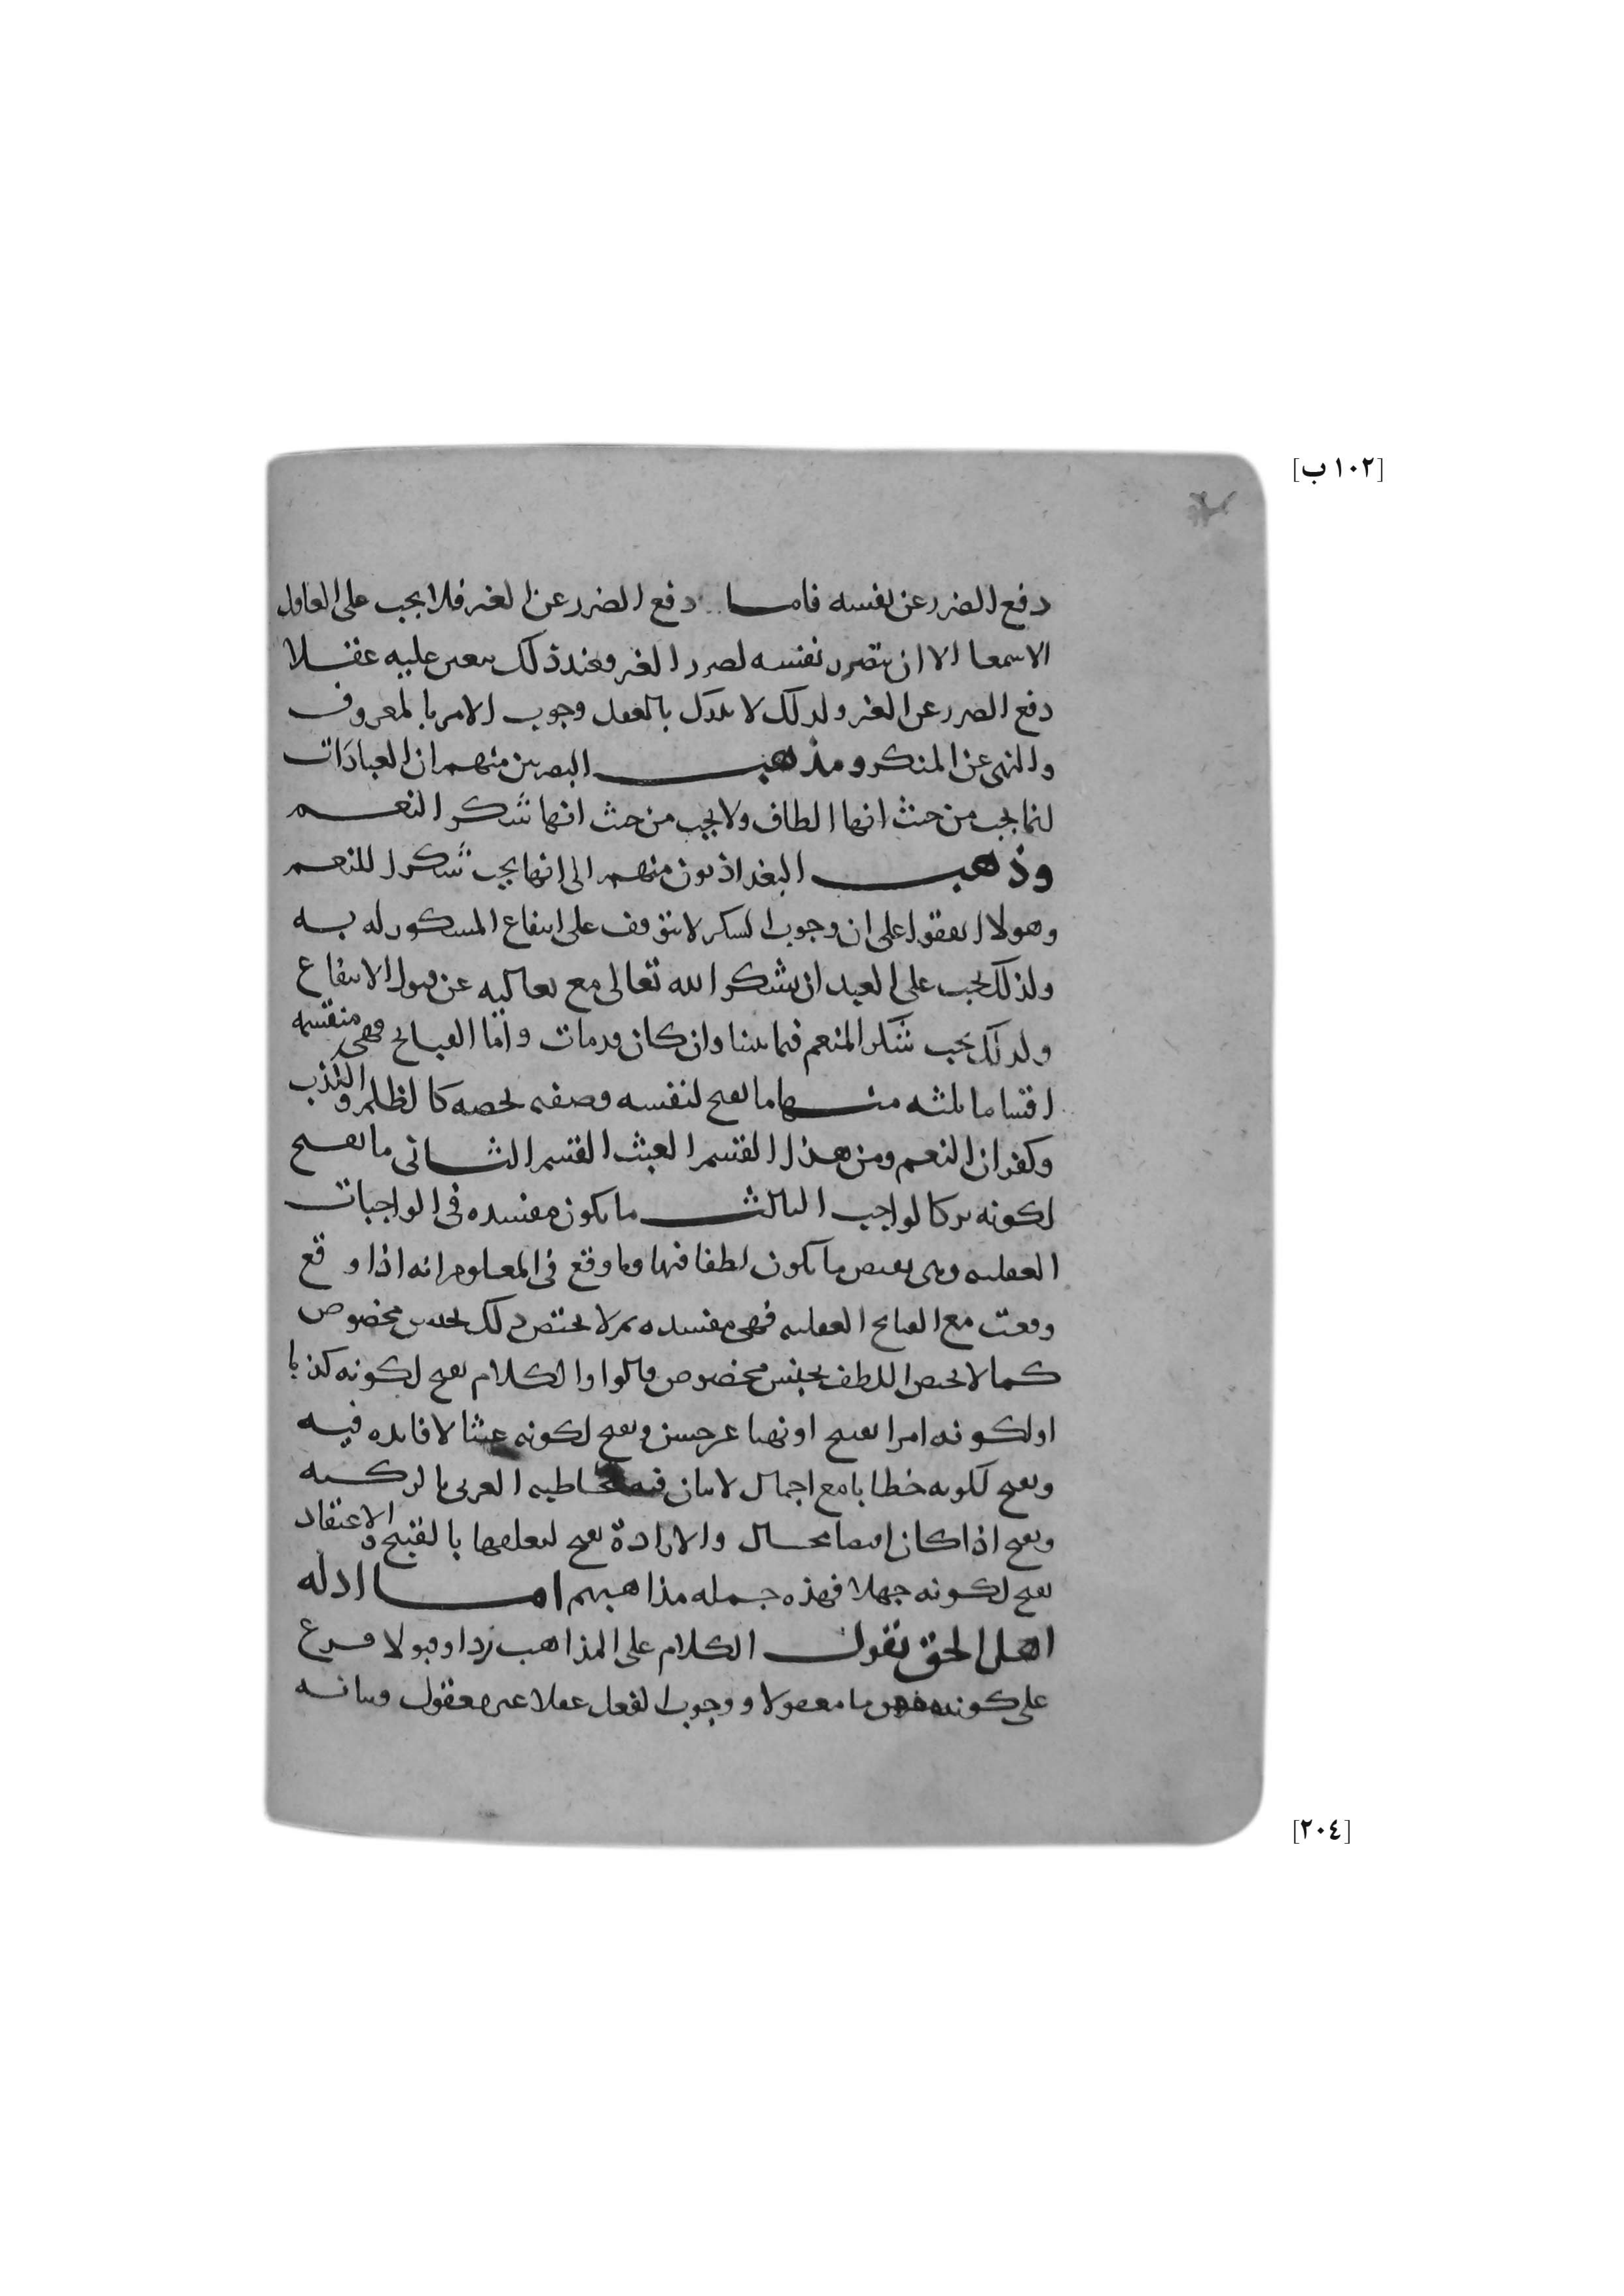 [١٠٢ ب]
دفع الضرر عن نفسه فاما دفع الضرر عن الغير فلا يجب على العاقل
الا سمعا الا ان يتضرر نفسه لضرر الغير فعند ذلك يتعين عليه عقلا
دفع الضرر عن الغير ولذلك لا يدرك بالعقل وجوب الامر بالمعروف
والنهى عن المنكر ومذهب البصريين منهم ان العبادات
انما يجب من حيث انها الطاف ولا يجب من حيث انها شكر النعم
وذهب البغداذيون منهم الى انها يجب شكرا للنعم
وهولا اتفقوا على ان وجوب الشكر لا يتوقف على انتفاع المشكور له به
ولذلك يجب على العبد ان يشكر الله تعالى مع تعاليه عن قبول الانتفاع
ولذلك يجب شكر المنعم فيما بيننا وان كان قد مات واما القبائح فهى منقسمة
اقساما ثلثه منها ما يقبح لنفسه وصفته تخصه كالظلم والكذب
وكفران النعم ومن هذا القسم العبث القسم الثانى ما يقبح
لكونه تركا لواجب الثالث ما يكون مفسده فى الواجبات
العقليه وهى نقيض ما يكون لطفا فيها وما وقع فى المعلوم انه اذا وقع
وقعت مع القبائح العقليه فهى مفسده ثم لا يختص ذلك بجنس مخصوص
كما لا يختص اللطف بجنس مخصوص قالوا والكلام يقبح لكونه كذبا
او لكونه امرا بقبيح او نهيا عن حسن ويقبح لكونه عبثا لا فايده فيه
ويقبح لكونه خطابا مع اجمال لا بيان فيه مخاطبه العربى بالتركيه
ويقبح اذا كان محال والارادة يقبح لتعلقها بالقبيح والاعتقاد
يقبح لكونه جهلا فهذه جمله مذاهبهم اما ادله
اهل الحق نقول الكلام على المذاهب ردا وقبولا فرع
على كونه معقولا ووجوب الفعل عقلا غير معقول وبيانه
[٢٠٤]